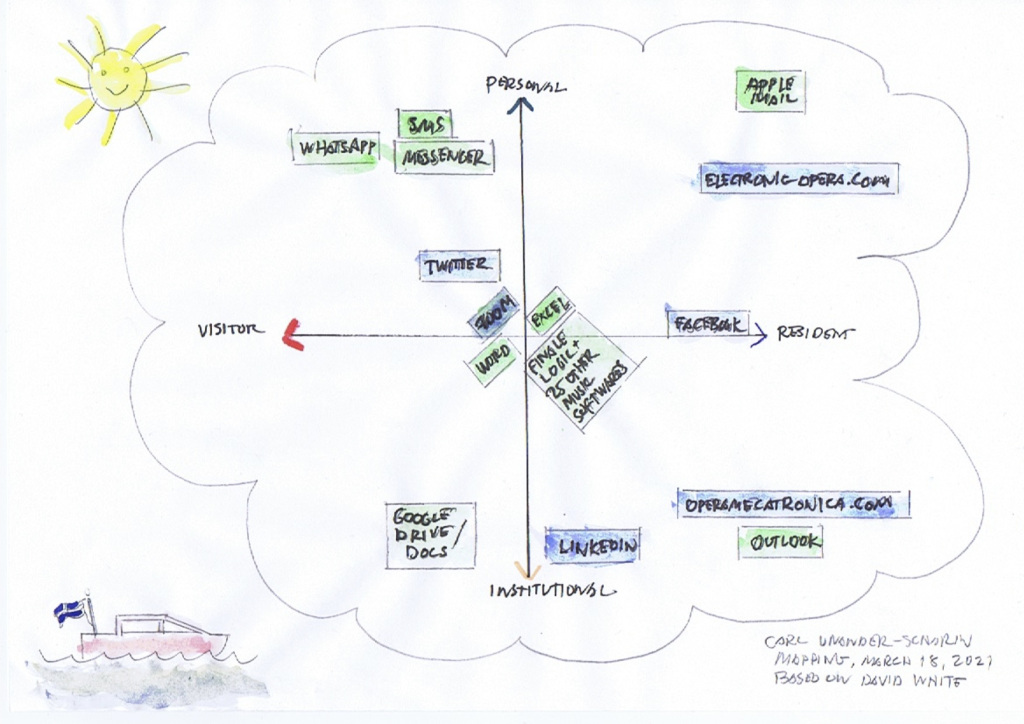 PERSONAL
APPLE
MAIL
SMS
WHATSAPP
MESSENGER
ELECTRONIC-OPERA.COM
TWITTER
ZOOM
EXCEL
FACEBOOK
VISITOR
RESIDENT
WORD
FINALE
LOGIC +
25 OTHER
MUSIC
SOFTWARES
GOOGLE
DRIVE/
DOCS
OPERAMECATRONICA.COM
LINKEDIN
OUTLOOK
INSTITUTIONAL
CARL UNANDER-SCHARIN
MAPPING, MARCH 18, 2021
BASED ON DAVID WHITE